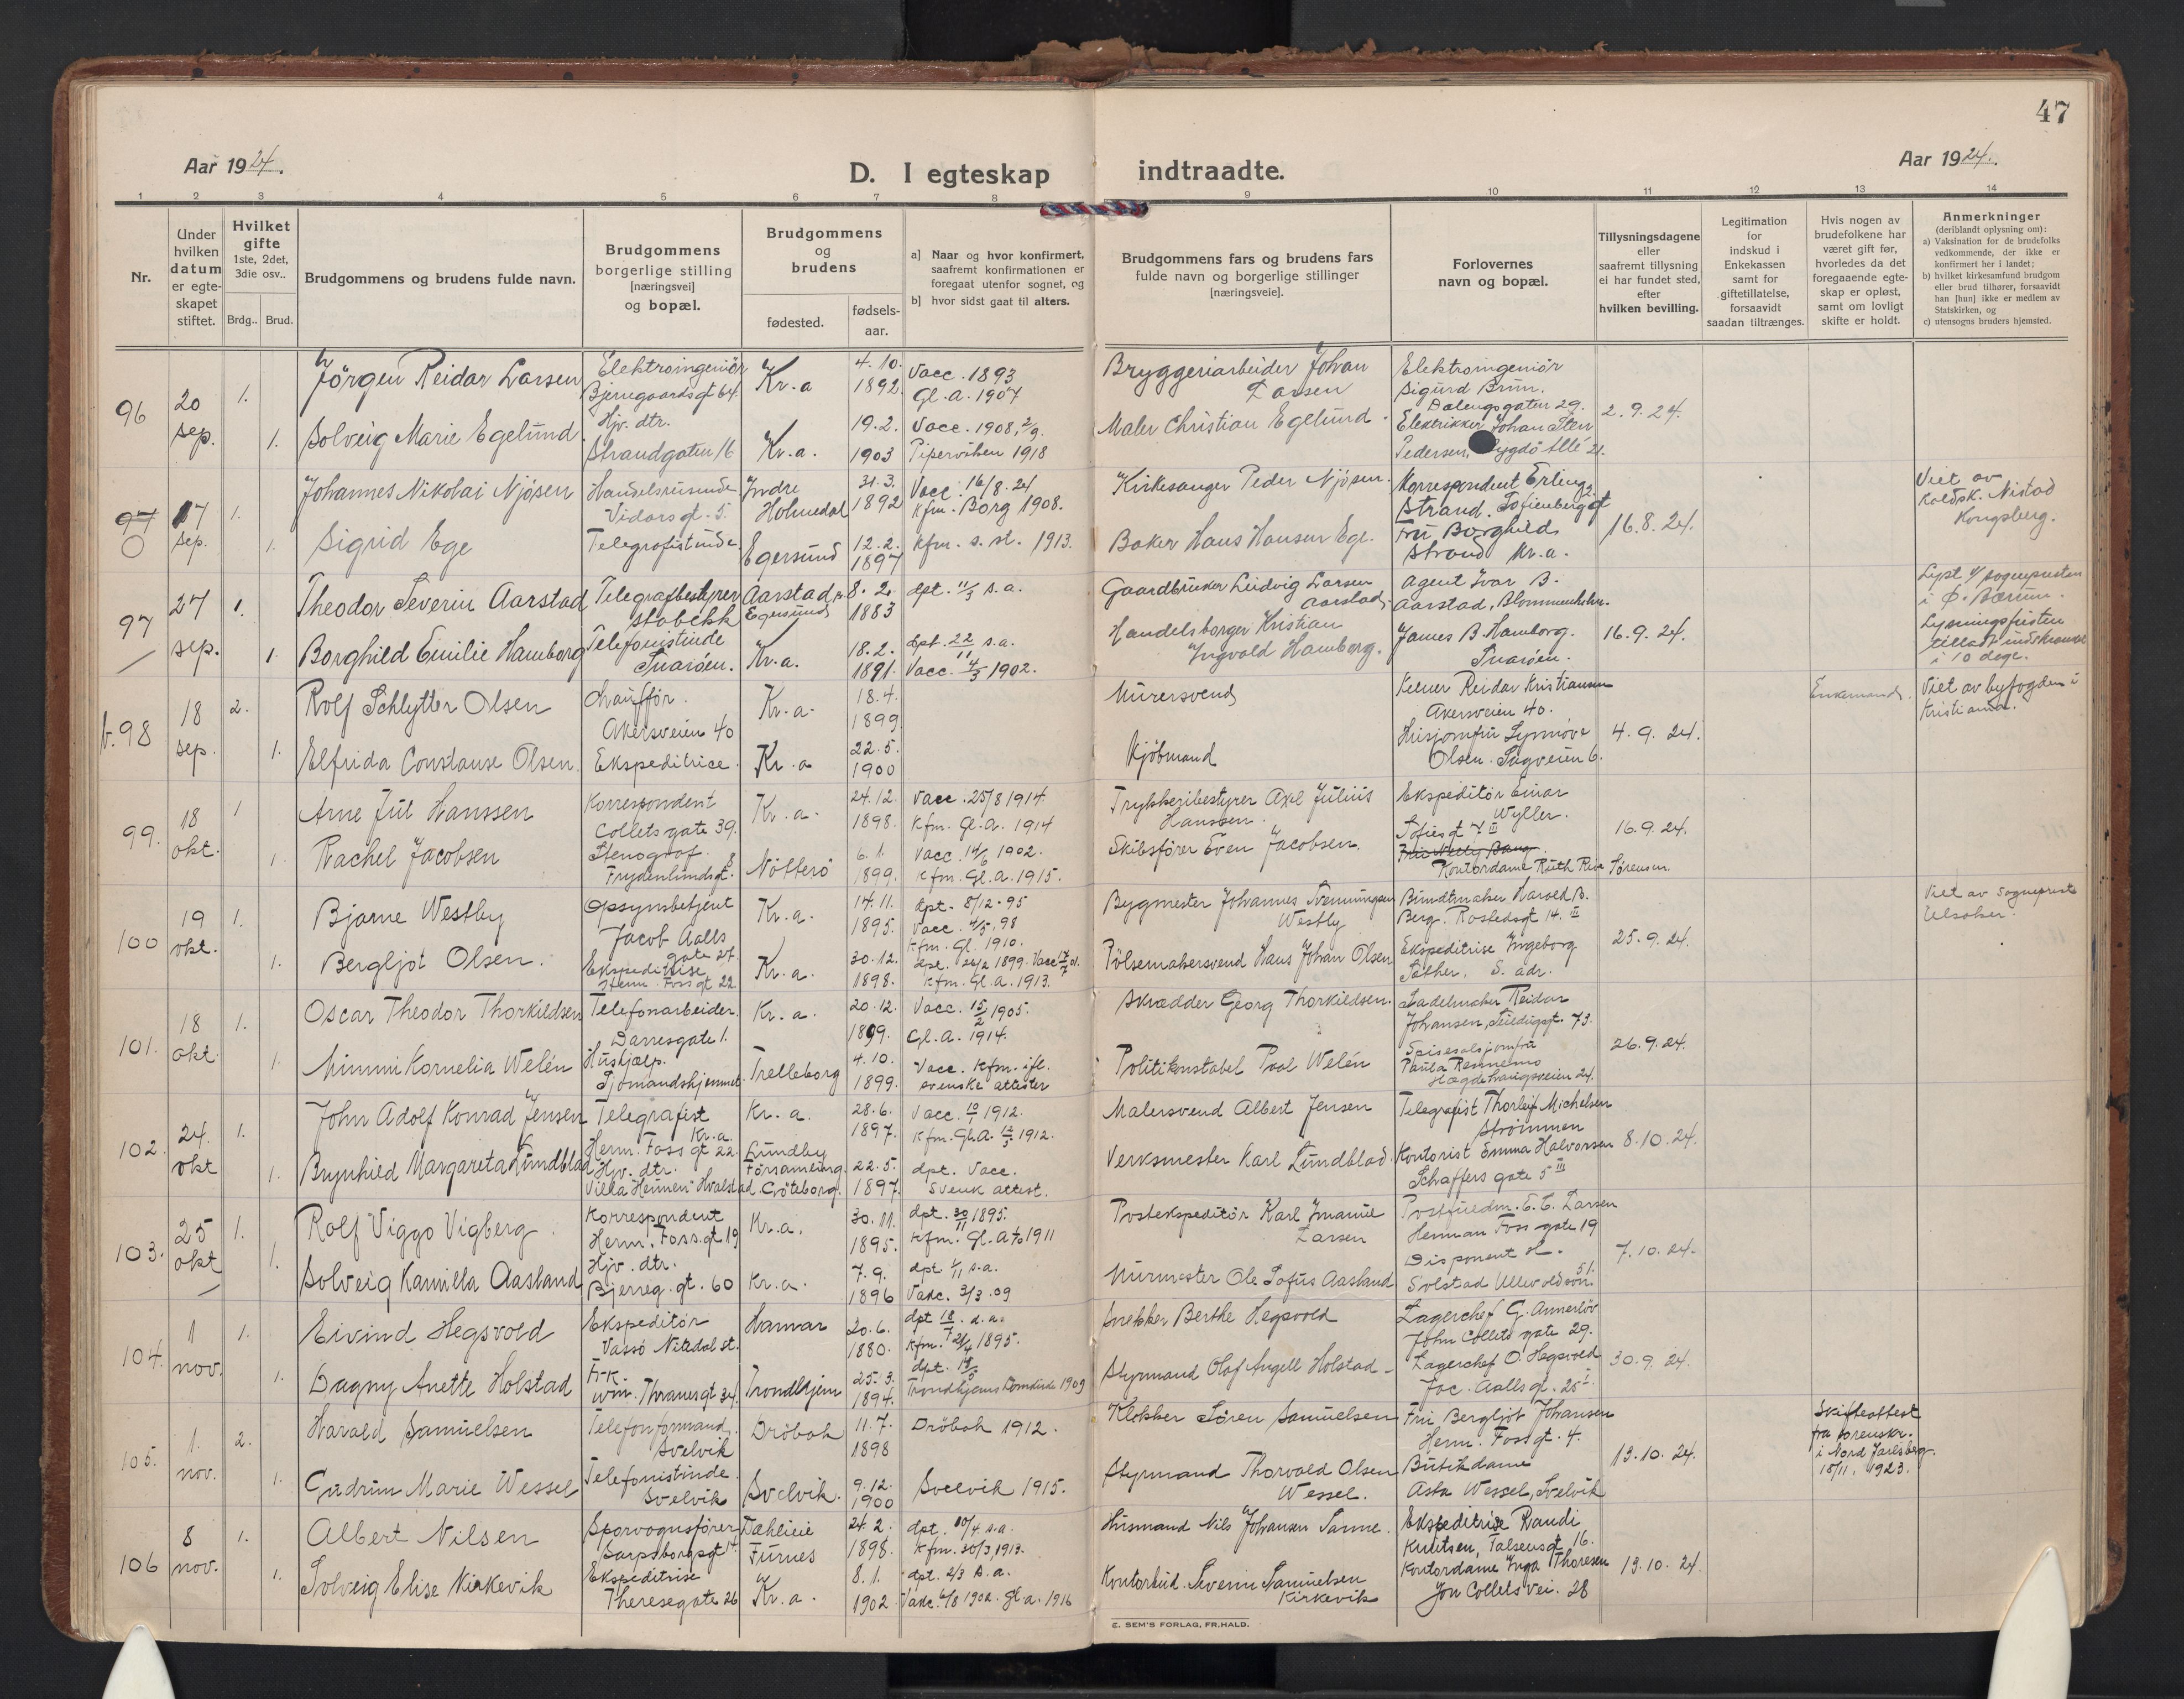 47
Aar 1924.
D. I egteskap indtraadte.
Aar 1924.
1 2 3 4 5 6 7 8 9 10 11 12 13 14
Nr.
Under hvilken datum er egteskapet stiftet.
Hvilket gifte 1ste, 2det, 3die osv..
Brdg.. Brud.
Brudgommens og brudens fulde navn.
Brudgommens borgerlige stilling [næringsvei] og bopæl.
Brudgommens og brudens
fødested.
fødsels-aar.
a] Naar og hvor konfirmert, saafremt konfirmationen er foregaat utenfor sognet, og
b] hvor sidst gaat til alters.
Brudgommens fars og brudens fars fulde navn og borgerlige stillinger [næringsveie].
Forlovernes navn og bopæl.
Tillysningsdagene eller saafremt tillysning ei har fundet sted, efter hvilken bevilling.
Legitimation for indskud i Enkekassen samt for giftetillatelse, forsaavidt saadan tiltrænges.
Hvis nogen av brudefolkene har været gift før, hvorledes da det foregaaende egteskap er opløst, samt om lovligt skifte er holdt.
Anmerkninger (deriblandt oplysning om):
a) Vaksination for de brudefolks vedkommende, der ikke er konfirmert her i landet;
b) hvilket kirkesamfund brudgom eller brud tilhører, forsaavidt han [hun] ikke er medlem av Statskirken, og
c) utensogns bruders hjemsted.
96 20 sep. 1. Jörgen Reidar Larsen Elektroingeniör Bjerregaardsgt 64. Kr.a 4.10. 1892. Vacc. 1893 Gl.a. 1907 Bryggeriarbeider Johan Larsen Elektroingeniör Sigurd Brun. Dalengsgaten 29. 2.9.24.
1. Solveig Marie Egelund Hjv. dtr. Strandgaten 16 Kr.a. 19.2. 1903 Vacc. 1908, 2/9. Piperviken 1918 Maler Christian Egelund. Elektrikker Johan Sten Pedersen, Bygdö Allé 21.
97 17 sep. 1. Johannes Nikolai Njösen Handelsreisende Vidarsgt. 5. Indre Holmedal 31.3. 1892 Vacc. 16/8.24 Kfm. Borg 1908. Kirkesanger Peder Njösen. Korrespondent Erling Strand. Tofienberggt 16.8.24. Viet av Kaldsk. Nistad Kongsberg.
1. Sigrid Ege Telegrafistinde Egersund 12.2. 1897 Kfm. s. st. 1913. Baker Hans Hansen Ege. Fru Borghild Strand Kr.a.
97 27 sep. 1. Theodor Severin Aarstad Telegrafbestyrer Stabekk Aarstad, p. Egersund 8.2. 1883 dpt. 11/3 s.a. Gaardbruker Ludvig Larsen Aarstad, Agent Ivar B. Aarstad, Blommenholm. 16.9.24. Lyst v/ sognepresten i Ø. Bærum. Lysningsfristen tillatt indskrænket i 10 dage.
1. Borghild Emilie Hamborg Telefonistinde Snaröen. Kr.a. 18.2. 1891. dpt. 22/11 s.a. Vacc. 4/3 1902. Handelsborger Kristian Ingvald Hamborg. James B. Hamborg. Snaröen.
b. 98 18 sep. 2. Rolf Schlytter Olsen Chaufför. Akersveien 40 Kr.a. 18.4. 1899. Murersvend Kelner Reidar Kristiansen Akersveien 40. 4.9.24. Enkemand. Viet av byfogden i Kristiania.
1. Elfrida Constanse Olsen. Ekspeditrice. Kr.a 22.5. 1900 Kjöbmand Husjomfru Synnöve Olsen. Sagveien 6.
99. 18 okt. 1 Arne Jul Hanssen Korrespondent Collets gate 39. Kr.a. 24.12. 1898. Vacc. 25/8 1914. Kfm. Gl.a. 1914 Trykkeribestyrer Axel Julius Hanssen. Ekspeditör Einar Wyller. Sofiesgt 7 III 16.9.24.
1. Rachel Jacobsen Stenograf. Frydenlundsgt. 8 Nötterö 6.1. 1899. Vacc. 14/6 1902. Kfm. Gl.a. 1915. Skibsförer Even Jacobsen. Fru Nelly Bang. Kontordame Ruth Rise Sörensen.
100 19 okt. 1. Bjarne Westby Opsynsbetjent Jacob Aalls gate 27. Kr.a. 14.11. 1895. dpt. 8/12.95 Vacc. 4/5.98 Kfm. Gl. 1910. Bygmester Johannes Svenningsen Westby Bundtmaker Harald B. Berg. Rostedsgt 14. III 25.9.24. Viet av Sogneprest Ulsaker.
1. Bergljot Olsen. Ekspeditrise Herm. Foss gt 22. Kr.a. 30.12. 1898. dpt. 26/2 1899. Kfm. Gl.a. 1913. Pölsemakersvend Hans Johan Olsen Ekspeditrise Ingeborg Sæther. S. adr.
101. 18 okt. 1. Oscar Theodor Thorkildsen Telefonarbeider. Darresgate 1. Kr.a. 20.12. 1899. Vacc. 15/2 1905. Gl.a. 1914. Skrædder Georg Thorkildsen. Sadelmaker Reidar Johansen, Seilduksgt. 73. 26.9.24.
1. Mimmi Kornelia Welén Hushjælp. Sjömandshjemmet. Trelleborg 4.10. 1899. Vacc. Kfm. ifl. svenske attester Politikonstabel Poal Welén Spisesalsjomfru Paula Rennemo Hægdehaugsveien 24.
102. 24. okt 1. John Adolf Konrad Jensen Telegrafist Kr.a. Herm. Foss gt 22. Kr.a. 28.6. 1897. Vacc. 10/1 1912. Kfm. Gl.a. 1912. Malersvend Albert Jensen Telegrafist Thorleif Michelsen Strömmen 8.10.24.
1. Brynhild Margareta Lundblad Hjv. dtr. Villa "Heimen" Hvalstad Lundby Församling. Göteborg. 22.5. 1897. dpt. Vacc. Svensk attest. Verksmester Karl Lundblad. Kontorist Emma Halvorsen Schaffers gate 5 III
103. 25 okt 1. Rolf Viggo Vigberg. Korrespondent Herm. Foss.gt. 19 Kr.a. 30.11. 1895. dpt. 30/11 1895. Kfm. Gl.a. 1911 Postekspeditör Karl Imanuel Larsen Postfuldm. E. C. Larsen Herman Foss gate 19 7.10.24.
1. Solveig Kamilla Aasland Hjv. dtr. Bjerreg. gt. 60 Kr.a. 7.9. 1896 dpt. 1/11 s.a. Vakc. 3/3.09 Murmester Ole Sofus Aasland Disponent H. Solstad Ullevoldsvn. 51.
104. 1 nov. 1. Eivind Hegsvold Ekspeditör Vassö Nitedal st. Hamar 20.6. 1880. dpt 18/7 s.a. Kfm. 21/4 1895. Snekker Berthe Hegsvold Lagerchef G. Annerlöv John Collets gate 29. 30.9.24.
1. Dagny Anette Holstad Frk. Wm. Thranesgt 34. Trondhjem 25.3. 1894. dpt. 14/5 Trondhjems Domkirke 1909 Styrmand Olaf Angell Holstad Lagerchef O. Hegsvold Jac. Aallsgt. 25 I.
105. 1. nov. 2. Harald Samuelsen Telefonformand. Svelvik Dröbak 11.7. 1898 Dröbak 1912. Klokker Sören Samuelsen Fru Bergljot Johansen Herm. Fossgt. 4. 13.10.24. Skifteattest fra sorenskr. i Nord Jarlsberg. 15/11. 1923.
1. Gudrun Marie Wessel Telefonistinde. Svelvik Svelvik. 9.12. 1900 Svelvik 1915. Styrmand Thorvald Olsen Wessel. Butikdame Asta Wessel, Svelvik
106 8 nov. 1. Albert Nilsen Sporvognsförer Sarpsborggt 17 Dæhlieie Furnes 24.2. 1898. dpt. 10/4 s.a. Kfm. 30/3, 1913. Husmand Nils Johansen Sanne. Ekspeditrise Randi Knutsen, Falsensgt 16. 13.10.24.
1. Solveig Elise Kirkevik Ekspeditrise Theresegate 26 Kr.a. 8.1. 1902 dpt. 2/3 s.a. Vakc. 6/8 1902. Gl.a. 1916 Kontorbud Severin Samuelsen Kirkevik Kontordame Inga Thoresen Jon Collets vei. 28
E. SEM'S FORLAG, FR.HALD.